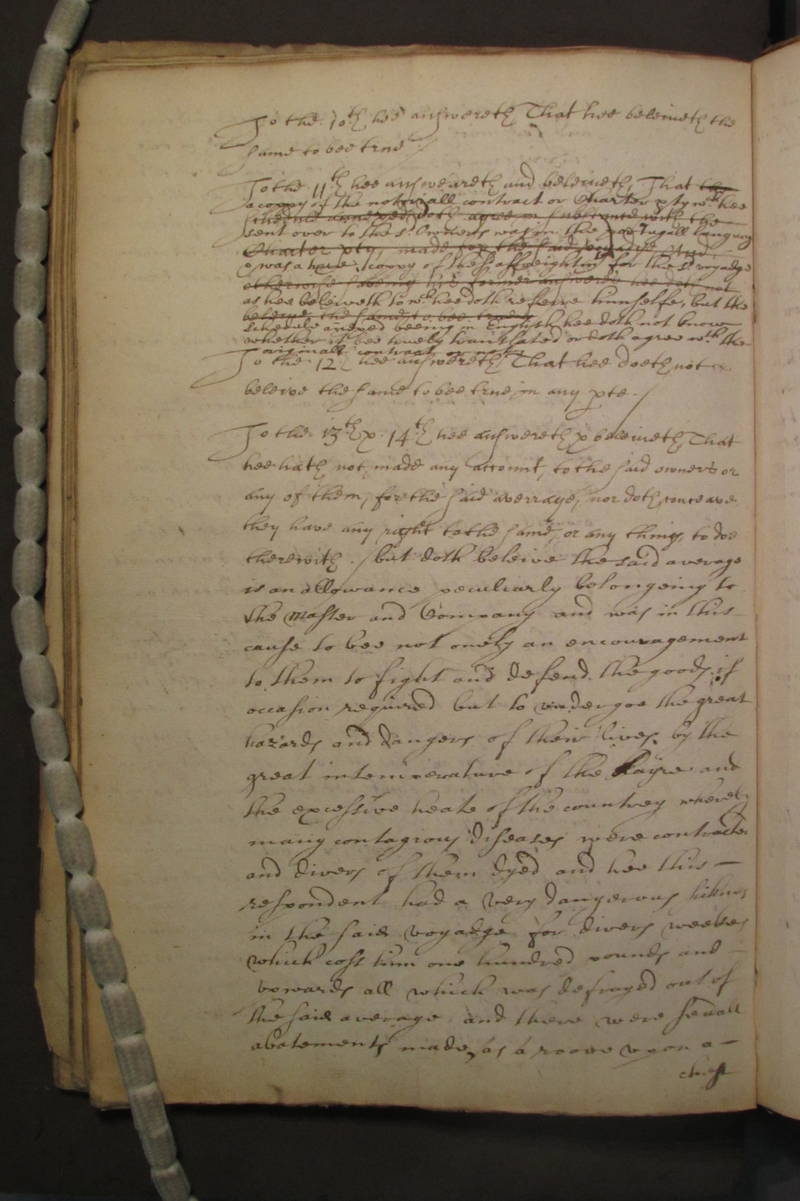 To the 10th hee answereth That hee beleiveth the
same to bee true /
To the 11th hee answeareth and beleiveth, That the
a coppy of the notoriall contract or Charter pty wch hee
schedule annexed doth agree in substance with the
sent over to the sd Owners was in the portugall language
Charter pty, made for the said voyadge And
& was a true coppy of the affreightmt for the sd voyadge
otherwise saveing his former answers hee doth not
as hee beleiveth to wch hee doth referre himselfe, but the
beleive the same to bee true
schedule anexed beeing in English hee doth not know
whether it bee truely translated or doth agree wth the
originall contract
To the 12th hee answereth That hee doeth not
beleive the same to bee true in any pte. /
To the 13th & 14th hee answereth & beleiveth, That
hee hath not made any accomt, to the said owners or
any of them, for the said averrage, nor doth conceave
they have any right to the same, or any thing to doe
therewith. / but doth beleive the said average
is an allowance peculiarly belongeing to
the Master and Company and was in this
cause to bee not onely an encouragement
to them to fight and defend the goods if
occasion required but to undergoe the great
hazards and dangers of their lives by the
great intemperature of the ayre and
the excessive heate of the countrey whereby
many contagious diseases were contracted
and divers of them dyed and hee this
respondent had a very dangerous sicknes
in the said voyadge for divers weekes
which cost him one hundred pounds and
upwards all which was defrayed out of
the said average and there were seuall
abatements made, as a roove upon a
chest